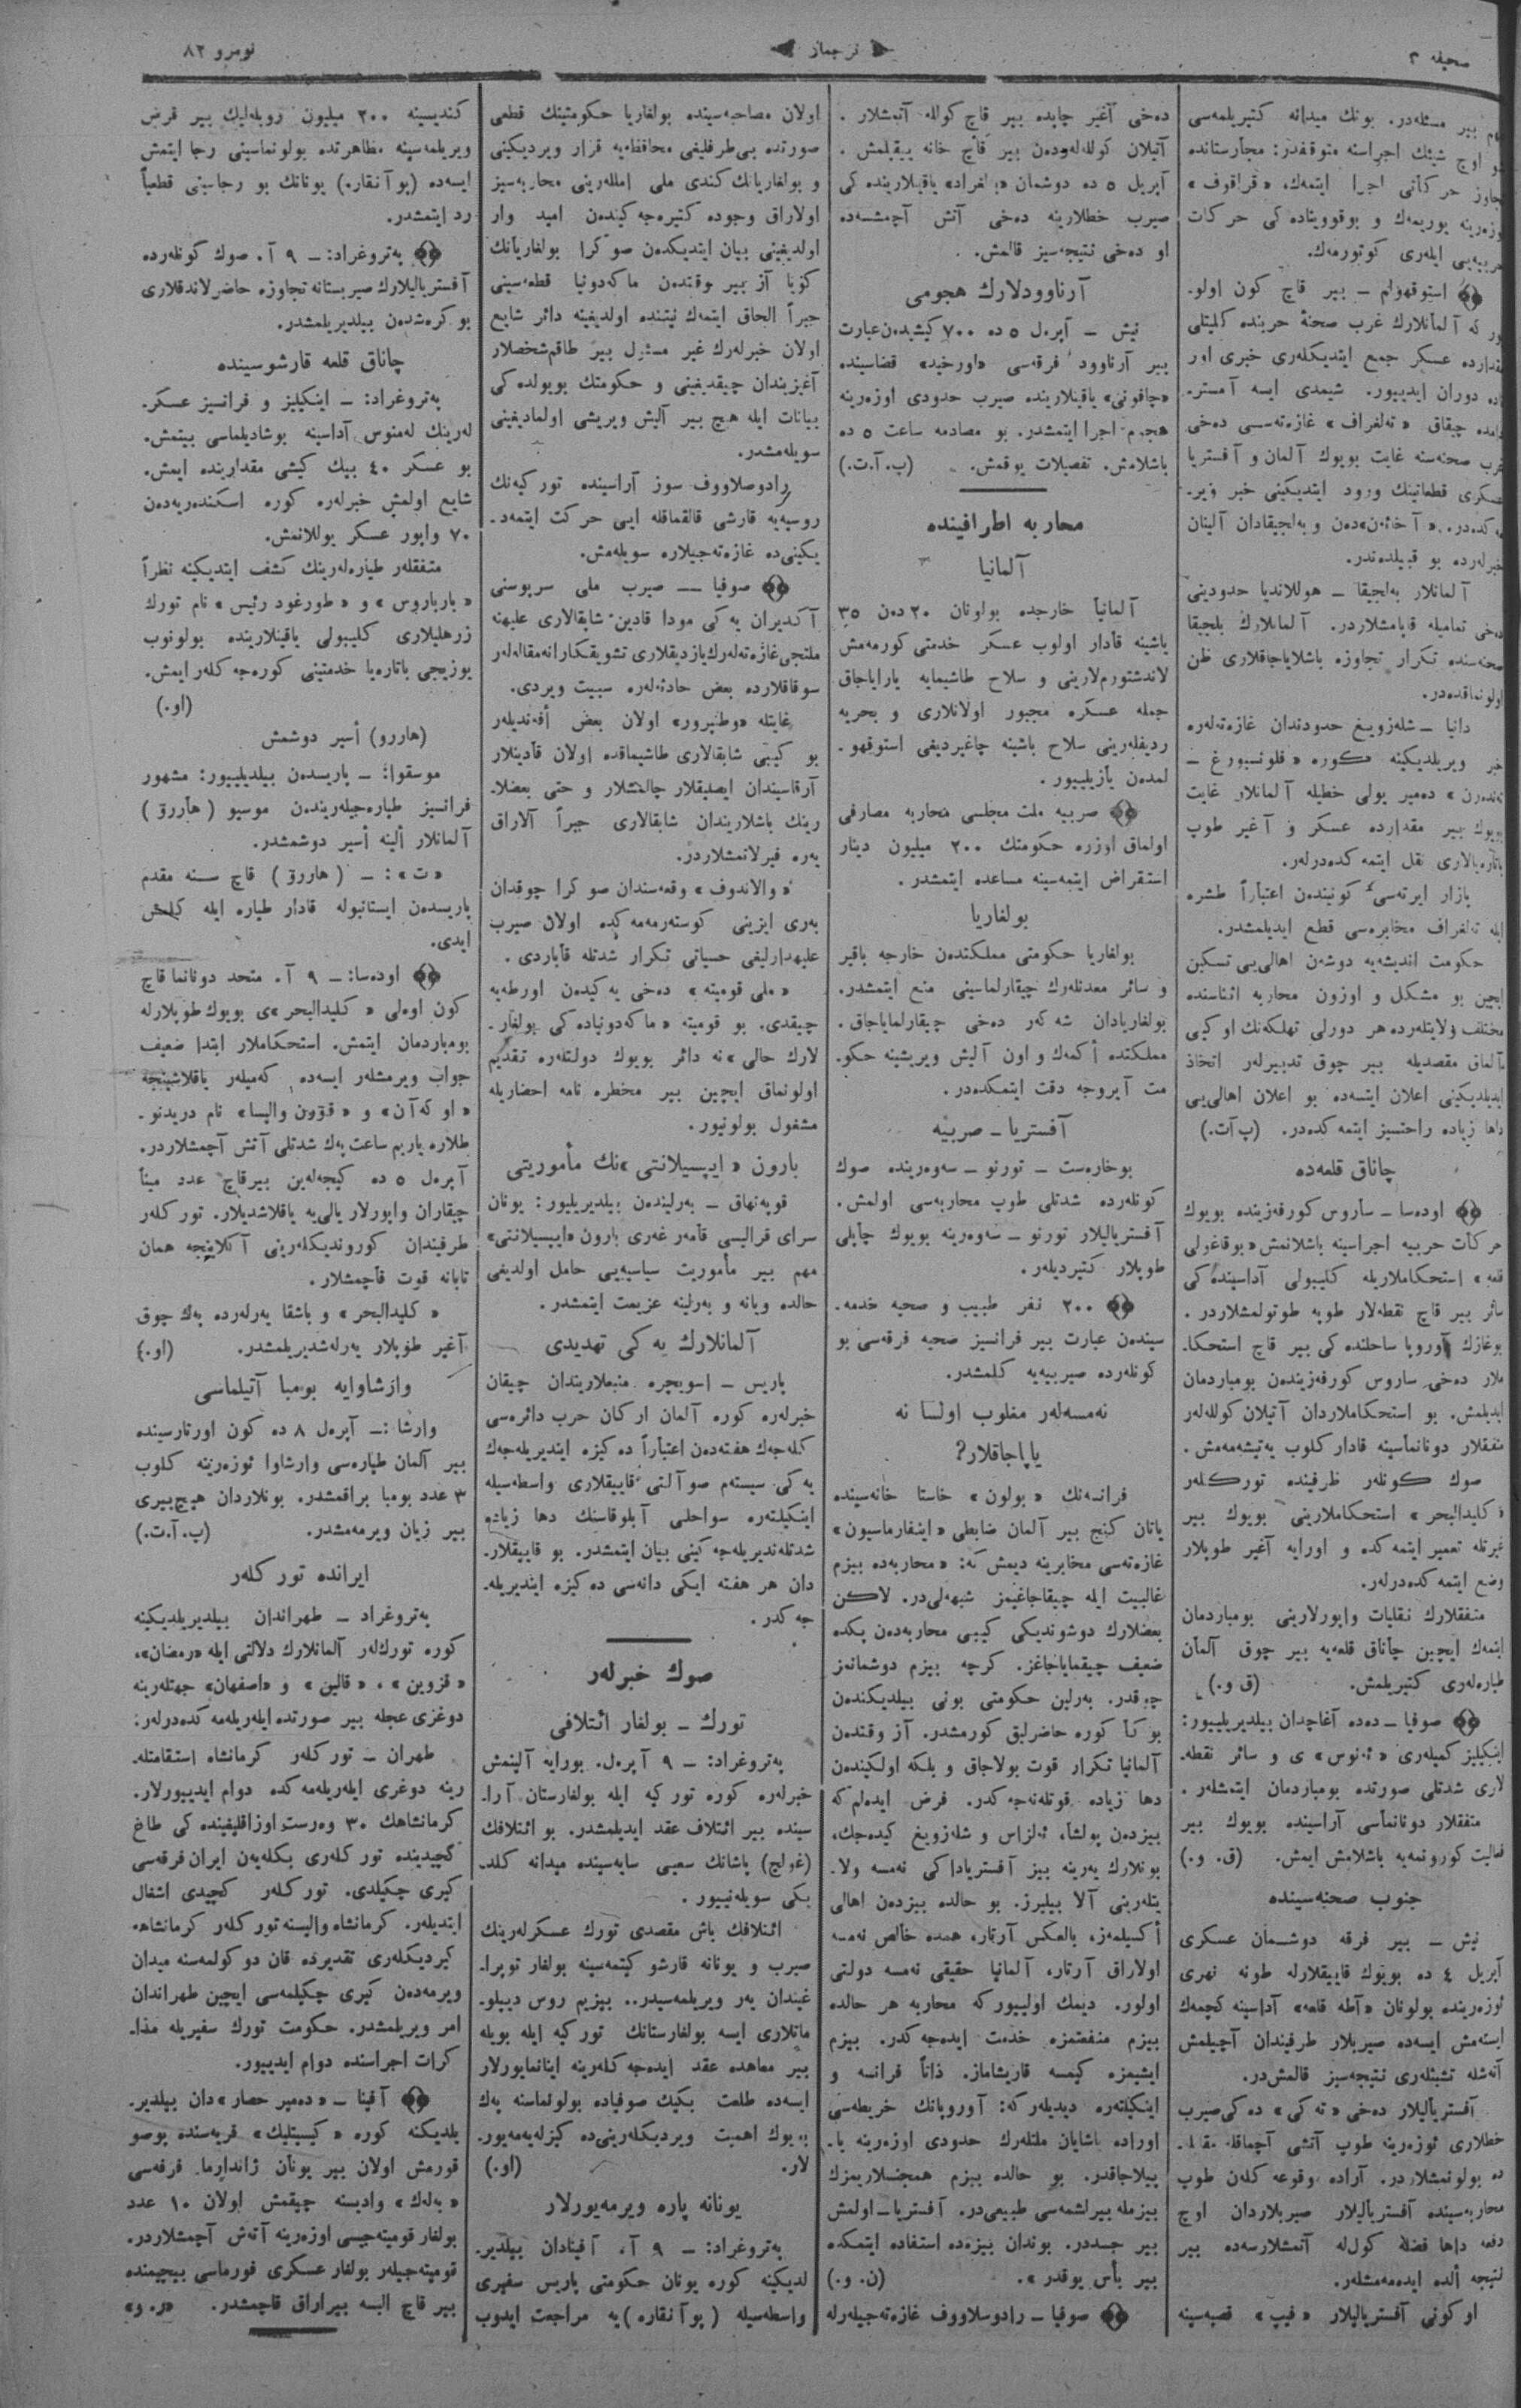 صحیفه ۳
ترجمان
نومرو ۸۲
بیر مسئله‌در. بونك میدانه كتیریلمه‌سی
اوچ شیئك اجراسنه متوقفدر: مجارستانده
حركاتی اجرا ایتمه‌ك، «قراقوف»
یوریمه‌ك و بوقووینا‌ده كی حركات
ایله‌ری كوتورمه‌ك.
استوقهولم – بیر قاچ كون اولو-
كه آلمانلارك غرب صحنهٔ حربنده كلیتلی
عسكر جمع ایتدیكله‌ری خبری اور
دوران ایدییور. شیمدی ایسه آمستر-
چیقاق «ته‌لغراف» غازه‌ته‌سی دخی
صحنه‌سنه غایت بویوك آلمان و آفستریا
قطعاتینك ورود ایتدیكینی خبر ویر-
و به‌لجیقادان آلینان
بو قبیلده‌ندر.
آلمانلار به‌لجیقا – هوللاندیا حدودینی
تمامیله قاپامشلاردر. آلمانلارك بلجیقا
صحنه‌سنده تكرار تجاوزه باشلایاجاقلاری ظن
اولونماقده‌در.
دانیا – شله‌زویغ حدودندان غازه‌ته‌له‌ره
خبر ویریلدیكینه كوره «فلونسبورغ –
ده‌میر یولی خطیله آلمانلار غایت
بیر مقدارده عسكر و آغیر طوپ
باتاره‌یالاری نقل ایتمه كده‌درلر.
بازار ایرته‌سی كونینده‌ن اعتباراً طشره
ایله ته‌لغراف مخابره‌سی قطع ایدیلمشدر.
حكومت اندیشه‌یه دوشه‌ن اهالی‌یی تسكین
ایچین بو مشكل و اوزون محاربه اثناسنده
مختلف ولایتله‌رده هر دورلی تهلكه‌نك اوكنی
آلماق مقصدیله بیر چوق تدبیرله‌ر اتخاذ
ایدیلدیكینی اعلان ایتسه‌ده بو اعلان اهالی‌یی
داها زیاده راحتسیز ایتمه كده‌در. (پ.آ.ت.)
چاناق قلعه‌ده
اوده‌سا – ساروس كورفه‌زینده بویوك
حركات حربیه اجراسینه باشلانمش «بوقاغولی
قلعه» استحكاملاریله كلیبولی آداسینده كی
سائر بیر قاچ نقطه‌لار طوپه طوتولمشلاردر.
بوغازك آوروپا ساحلنده كی بیر قاچ استحكا-
ملار ده‌خی ساروس كورفه‌زینده‌ن بومباردمان
ایدیلمش. بو استحكاملاردان آتیلان كولله‌له‌ر
متفقلار دونانماسینه قادار كلوب یه‌تیشه‌مه‌مش.
صوك كونله‌ر ظرفینده توركله‌ر
«كلیدالبحر» استحكاملارینی بویوك بیر
غیرتله تعمیر ایتمه كده و اورایه آغیر طوپلار
وضع ایتمه كده‌درله‌ر.
متفقلارك نقلیات واپورلارینی بومباردمان
ایتمه‌ك ایچین چاناق قلعه‌یه بیر چوق آلمان
طیاره‌له‌ری كتیریلمش. (ق و.)
صوفیا – ده‌ده آغاچدان بیلدیریلییور:
اینكیلیز كمیله‌ری «ئه‌نوس» ی و سائر نقطه-
لاری شدتلی صورتده بومباردمان ایتمشله‌ر.
متفقلار دونانماسی آراسینده بویوك بیر
فعالیت كورونمه‌یه باشلامش ایمش. (ق. و.)
جنوب صحنه‌سینده
نیش – بیر فرقه دوشمان عسكری
آپریل ٤ ده بویوك قاییقلارله طونه نهری
اوزه‌رینده بولونان «آطه قلعه» آداسینه كچمه‌ك
ایسته‌مش ایسه‌ده صیربلار طرفیندان آچیلمش
آته‌شله تشبثله‌ری نتیجه‌سیز قالمش‌در.
آفستریالیلار ده‌خی «ته كی» ده كی صیرب
خطلاری ئوزه‌رینه طوپ آتشی آچماقله مقابله-
ده بولونمشلاردر. آراده وقوعه كله‌ن طوپ
محاربه‌سینده آفستریالیلار صیربلاردان اوچ
دفعه داها فضله كولله آتمشلارسه‌ده بیر
نتیجه ألده ایده‌مه‌مشله‌ر.
او كونی آفستریالیلار «فیپ» قصبه‌سینه
ده‌خی آغیر چاپده بیر قاچ كولله آتمشلار.
آتیلان كولله‌له‌رده‌ن بیر قاچ خانه ییقیلمش.
آپریل ٥ ده دوشمان «بلغراد» یاقینلارینده كی
صیرب خطلارینه ده‌خی آتش آچمشسه‌ده
او ده‌خی نتیجه‌سیز قالمش.
آرناوودلارك هجومی
نیش – آپره‌ل ٥ ده ۷۰۰ كیشیده‌ن عبارت
بیر آرناوود فرقه‌سی «اورخید» قضاسینده
«چافونی» یاقینلارینده صیرب حدودی اوزه‌رینه
هجوم اجرا ایتمشدر. بو مصادمه ساعت ٥ ده
باشلامش. تفصیلات یوقمش. (پ.آ.ت.)
محاربه اطرافینده
آلمانیا
آلمانیا خارجده بولونان ۲۰ ده‌ن ۳٥
یاشینه قادار اولوب عسكر خدمتی كورمه‌مش
لاندشتورم‌لارینی و سلاح طاشیمایه یارایاجاق
جمله عسكره مجبور اولانلاری و بحریه
ردیفله‌رینی سلاح باشینه چاغیردیغی استوقهو-
لمده‌ن یازیلییور.
صربیه ملت مجلسی محاربه مصارفی
اولماق اوزره حكومتك ۲۰۰ میلیون دینار
استقراض ایتمه‌سینه مساعده ایتمشدر.
بولغاریا
بولغاریا حكومتی مملكتده‌ن خارجه باقیر
و سائر معدنله‌رك چیقارلماسینی منع ایتمشدر.
بولغاریادان شه‌كه‌ر ده‌خی چیقارلمایاجاق.
مملكتده أكمه‌ك و اون آلیش ویریشینه حكو-
مت آیروجه دقت ایتمكده‌در.
آفستریا – صربیه
بوخاره‌ست – تورنو – سه‌وه‌رینده صوك
كونله‌رده شدتلی طوپ محاربه‌سی اولمش.
آفستریالیلار تورنو – سه‌وه‌رینه بویوك چاپلی
طوپلار كتیردیله‌ر.
۲۰۰ نفر طبیب و صحیه خدمه-
سینده‌ن عبارت بیر فرانسیز صحیه فرقه‌سی بو
كونله‌رده صیربیه‌یه كلمشدر.
نه‌مسه‌له‌ر مغلوب اولسا نه
یاپاجاقلار؟
فرانسه‌نك «بولون» خاستا خانه‌سینده
یاتان كنج بیر آلمان ضابطی «اینفارماسیون»
غازه‌ته‌سی مخابرینه دیمش كه: «محاربه‌ده بیزم
غالبیت ایله چیقاجاغیمز شبهه‌لی‌در. لاكن
بعضلارك دوشوندیكی كیبی محاربه‌ده‌ن پكده
ضعیف چیقمایاجاغز. كرچه بیزم دوشمانمز
چوقدر. به‌رلین حكومتی بونی بیلدیكنده‌ن
بوكا كوره حاضرلیق كورمشدر. آز وقتده‌ن
آلمانیا تكرار قوت بولاجاق و بلكه اولكیده‌ن
دها زیاده قوتله‌نه‌جه كدر. فرض ایده‌لم كه
بیزده‌ن پولشا، ئه‌لزاس و شله‌زویغ كیده‌جك،
بونلارك یه‌رینه بیز آفستریاداكی نه‌مسه ولا-
یتله‌رینی آلا بیلیرز. بو حالده بیزده‌ن اهالی
أكسیلمه‌ز، بالعكس آرتار، همده خالص نه‌مسه
اولاراق آرتار، آلمانیا حقیقی نه‌مسه دولتی
اولور. دیمك اولییور كه محاربه هر حالده
بیزم منفعتمزه خدمت ایده‌جه كدر. بیزم
ایشیمزه كیمسه قاریشاماز. ذاتاً فرانسه و
اینكیلته‌ره دیدیله‌ر كه: آوروپانك خریطه‌سی
اوراده یاشایان ملتله‌رك حدودی اوزه‌رینه یا-
پیلاجاقدر. بو حالده بیزم همجنسلاریمزك
بیزمله بیرلشمه‌سی طبیعی‌در. آفستریا – اولمش
بیر جسددر. بوندان بیزه‌ده استفاده ایتمكده
بیر بأس یوقدر». (ن. و.)
صوفیا – رادوسلاووف غازه‌ته‌جیله‌رله
اولان مصاحبه‌سینده بولغاریا حكومتینك قطعی
صورتده بی‌طرفلیغی محافظه‌یه قرار ویردیكینی
و بولغاریانك كندی ملی امللرینی محاربه‌سیز
اولاراق وجوده كتیره‌جه كینده‌ن امید وار
اولدیغینی بیان ایتدیكده‌ن صوكرا بولغاریانك
كویا آز بیر وقتده‌ن ماكه‌دونیا قطعه‌سینی
جبراً الحاق ایتمه‌ك نیتنده اولدیغینه دائر شایع
اولان خبرله‌رك غیر مسئول بیر طاقم شخصلار
آغیزیندان چیقدیغینی و حكومتك بویولده كی
بیانات ایله هیچ بیر آلیش ویریشی اولمادیغینی
سویله‌مشدر.
رادوصلاووف سوز آراسینده توركیه‌نك
روسیه‌یه قارشی قالقماقله ایی حركت ایتمه‌د-
یكینی‌ده غازه‌ته‌جیلاره سویله‌مش.
صوفیا — صیرب ملی سرپوسنی
آكدیران یه كی مودا قادین شاپقالاری علیهنه
ملتجی غازه‌ته‌له‌رك یازدیقلاری تشویقكارانه مقاله‌له‌ر
سوقاقلارده بعض حادثه‌له‌ره سببیت ویردی.
غایتله «وطنپرور» اولان بعض أفه‌ندیله‌ر
بو كیبی شاپقالاری طاشیماقده اولان قادینلار
آرقاسیندان ایصلیقلار چالمشلار و حتی بعضلا-
رینك باشلاریندان شاپقالاری جبراً آلاراق
یه‌ره فیرلاتمشلاردر.
«والاندوف» وقعه‌سندان صوكرا چوقدان
به‌ری ایزینی كوسته‌رمه‌مه كده اولان صیرب
علیهدارلیغی حسیاتی تكرار شدتله قاباردی.
«ملی قومیته» ده‌خی یه كیده‌ن اورطه‌یه
چیقدی. بو قومیته «ماكه‌دونیاده كی بولغار-
لارك حالی» نه دائر بویوك دولتله‌ره تقدیم
اولونماق ایچین بیر مخطره نامه احضاریله
مشغول بولونیور.
بارون «ایپسیلانتی» نك مأموریتی
قوپه‌نهاق – به‌رلینده‌ن بیلدیریلیور: یونان
سرای قرالیسی قامه‌ر غه‌ری بارون «ایپسیلانتی»
مهم بیر مأموریت سیاسیه‌یی حامل اولدیغی
حالده ویانه و به‌رلینه عزیمت ایتمشدر.
آلمانلارك یه كی تهدیدی
پاریس – اسویچره منبعلاریندان چیقان
خبرله‌ره كوره آلمان اركان حرب دائره‌سی
كله‌جه‌ك هفته‌ده‌ن اعتباراً ده كیزه ایندیریله‌جه‌ك
یه كی سیسته‌م صو آلتی قاییقلاری واسطه‌سیله
اینكیلته‌ره سواحلی آبلوقاسنك دها زیاده
شدتله‌ندیریله‌جه كینی بیان ایتمشدر. بو قاییقلار-
دان هر هفته ایكی دانه‌سی ده كیزه ایندیریله-
جه كدر.
صوك خبرله‌ر
تورك – بولغار ائتلافی
په‌تروغراد: – ۹ آپره‌ل. بورایه آلینمش
خبرله‌ره كوره توركیه ایله بولغارستان آرا-
سینده بیر ائتلاف عقد ایدیلمشدر. بو ائتلافك
(غولچ) پاشانك سعیی سایه‌سینده میدانه كلد-
یكی سویله‌نییور.
ائتلافك باش مقصدی تورك عسكرله‌رینك
صیرب و یونانه قارشو كیتمه‌سینه بولغار توپرا-
غیندان یه‌ر ویریلمه‌سیدر.. بیزیم روس دیپلو-
ماتلاری ایسه بولغارستانك توركیه ایله بویله
بیر معاهده عقد ایده‌جه كله‌رینه اینانمایورلار
ایسه‌ده طلعت بكیك صوفیاده بولونماسنه پك
بویوك اهمیت ویردیكله‌رینی‌ده كیزله‌یه‌مه‌یور-
لار. (او.)
یونانه پاره ویرمه‌یورلار
په‌تروغراد: – ۹ آ. آفینادان بیلدیر-
لدیكینه كوره یونان حكومتی پاریس سفیری
واسطه‌سیله (پو آنقاره) یه مراجعت ایدوب
كندیسینه ۲۰۰ میلیون روبله‌لیك بیر قرض
ویریلمه‌سینه مظاهرتده بولونماسینی رجا ایتمش
ایسه‌ده (پو آنقاره) یونانك بو رجاسینی قطعیاً
رد ایتمشدر.
په‌تروغراد: – ۹ آ. صوك كونله‌رده
آفستریالیلارك صیربستانه تجاوزه حاضرلاندقلاری
بوكره‌شده‌ن بیلدیریلمشدر.
چاناق قلعه قارشوسینده
په‌تروغراد: – اینكیلیز و فرانسیز عسكر-
له‌رینك له‌منوس آداسینه بوشادیلماسی بیتمش.
بو عسكر ٤۰ بیك كیشی مقدارینده ایمش.
شایع اولمش خبرله‌ره كوره اسكنده‌ریه‌ده‌ن
۷۰ واپور عسكر یوللانمش.
متفقله‌ر طیاره‌له‌رینك كشف ایتدیكینه نظراً
«بارباروس» و «طورغود رئیس» نام تورك
زرهلیلاری كلیبولی یاقینلارینده بولونوب
یوزیجی باتاره‌یا خدمتینی كوره‌جه كله‌ر ایمش.
(او.)
(هاررو) أسیر دوشمش
موسقوا: – پاریسده‌ن بیلدیلییور: مشهور
فرانسیز طیاره‌جیله‌رینده‌ن موسیو (هاررۆ)
آلمانلار ألینه أسیر دوشمشدر.
«ت»: – (هاررۆ) قاچ سنه مقدم
پاریسده‌ن ایستانبوله قادار طیاره ایله كلمش
ایدی.
اوده‌سا: – ۹ آ. متحد دونانما قاچ
كون اولی «كلیدالبحر» ی بویوك طوپلارله
بومباردمان ایتمش. استحكاملار ابتدا ضعیف
جواب ویرمشله‌ر ایسه‌ده كه‌میله‌ر یاقلاشینجه
«اوكه‌آن» و «قۆون والیسا» نام دریدنو-
طلاره یاریم ساعت پك شدتلی آتش آچمشلاردر.
آپره‌ل ٥ ده كیجه‌له‌ین بیرقاچ عدد مینا
چیقاران واپورلار یالی‌یه یاقلاشدیلار. توركله‌ر
طرفیندان كوروندیكله‌رینی آكلاینجه همان
تابانه قوت قاچمشلار.
«كلیدالبحر» و باشقا یه‌رله‌رده پك چوق
آغیر طوپلار یه‌رله‌شدیریلمشدر. (او.)
وارشاوایه بومبا آتیلماسی
وارشا: – آپره‌ل ۸ ده كون اورتارسینده
بیر آلمان طیاره‌سی وارشاوا ئوزه‌رینه كلوب
۳ عدد بومبا براقمشدر. بونلاردان هیچ بیری
بیر زیان ویرمه‌مشدر. (پ.آ.ت.)
ایرانده توركله‌ر
په‌تروغراد – طهراندان بیلدیریلدیكینه
كوره تورك‌له‌ر آلمانلارك دلالتی ایله «رمضان»،
«قزوین»، «قالین» و «اصفهان» جهتله‌رینه
دوغری عجله بیر صورتده ایله‌ریله‌مه كده‌درله‌ر:
طهران – توركله‌ر كرمانشاه استقامتله-
رینه دوغری ایله‌ریله‌مه كده دوام ایدییورلار.
كرمانشاهك ۳۰ وه‌رست اوزاقلیغینده كی طاغ
كچیدینده توركله‌ری بكله‌یه‌ن ایران فرقه‌سی
كیری چكیلدی. توركله‌ر كچیدی اشغال
ایتدیله‌ر. كرمانشاه والیسنه توركله‌ر كرمانشاهه
كیردیكله‌ری تقدیرده قان دوكولمه‌سنه میدان
ویرمه‌ده‌ن كیری چكیلمه‌سی ایچین طهراندان
امر ویریلمشدر. حكومت تورك سفیریله مذا-
كرات اجراسنده دوام ایدییور.
آفینا – «ده‌میر حصار» دان بیلدیر-
یلدیكنه كوره «كیسیتلیك» قریه‌سنده پوصو
قورمش اولان بیر یونان ژاندارما فرقه‌سی
«به‌له‌ك» وادیسنه چیقمش اولان ۱۰ عدد
بولغار قومیته‌جیسی اوزه‌رینه آته‌ش آچمشلاردر.
قومیته‌جیله‌ر بولغار عسكری فورماسی بیچیمنده
بیر قاچ البسه بیراراق قاچمشدر. «ر. و»